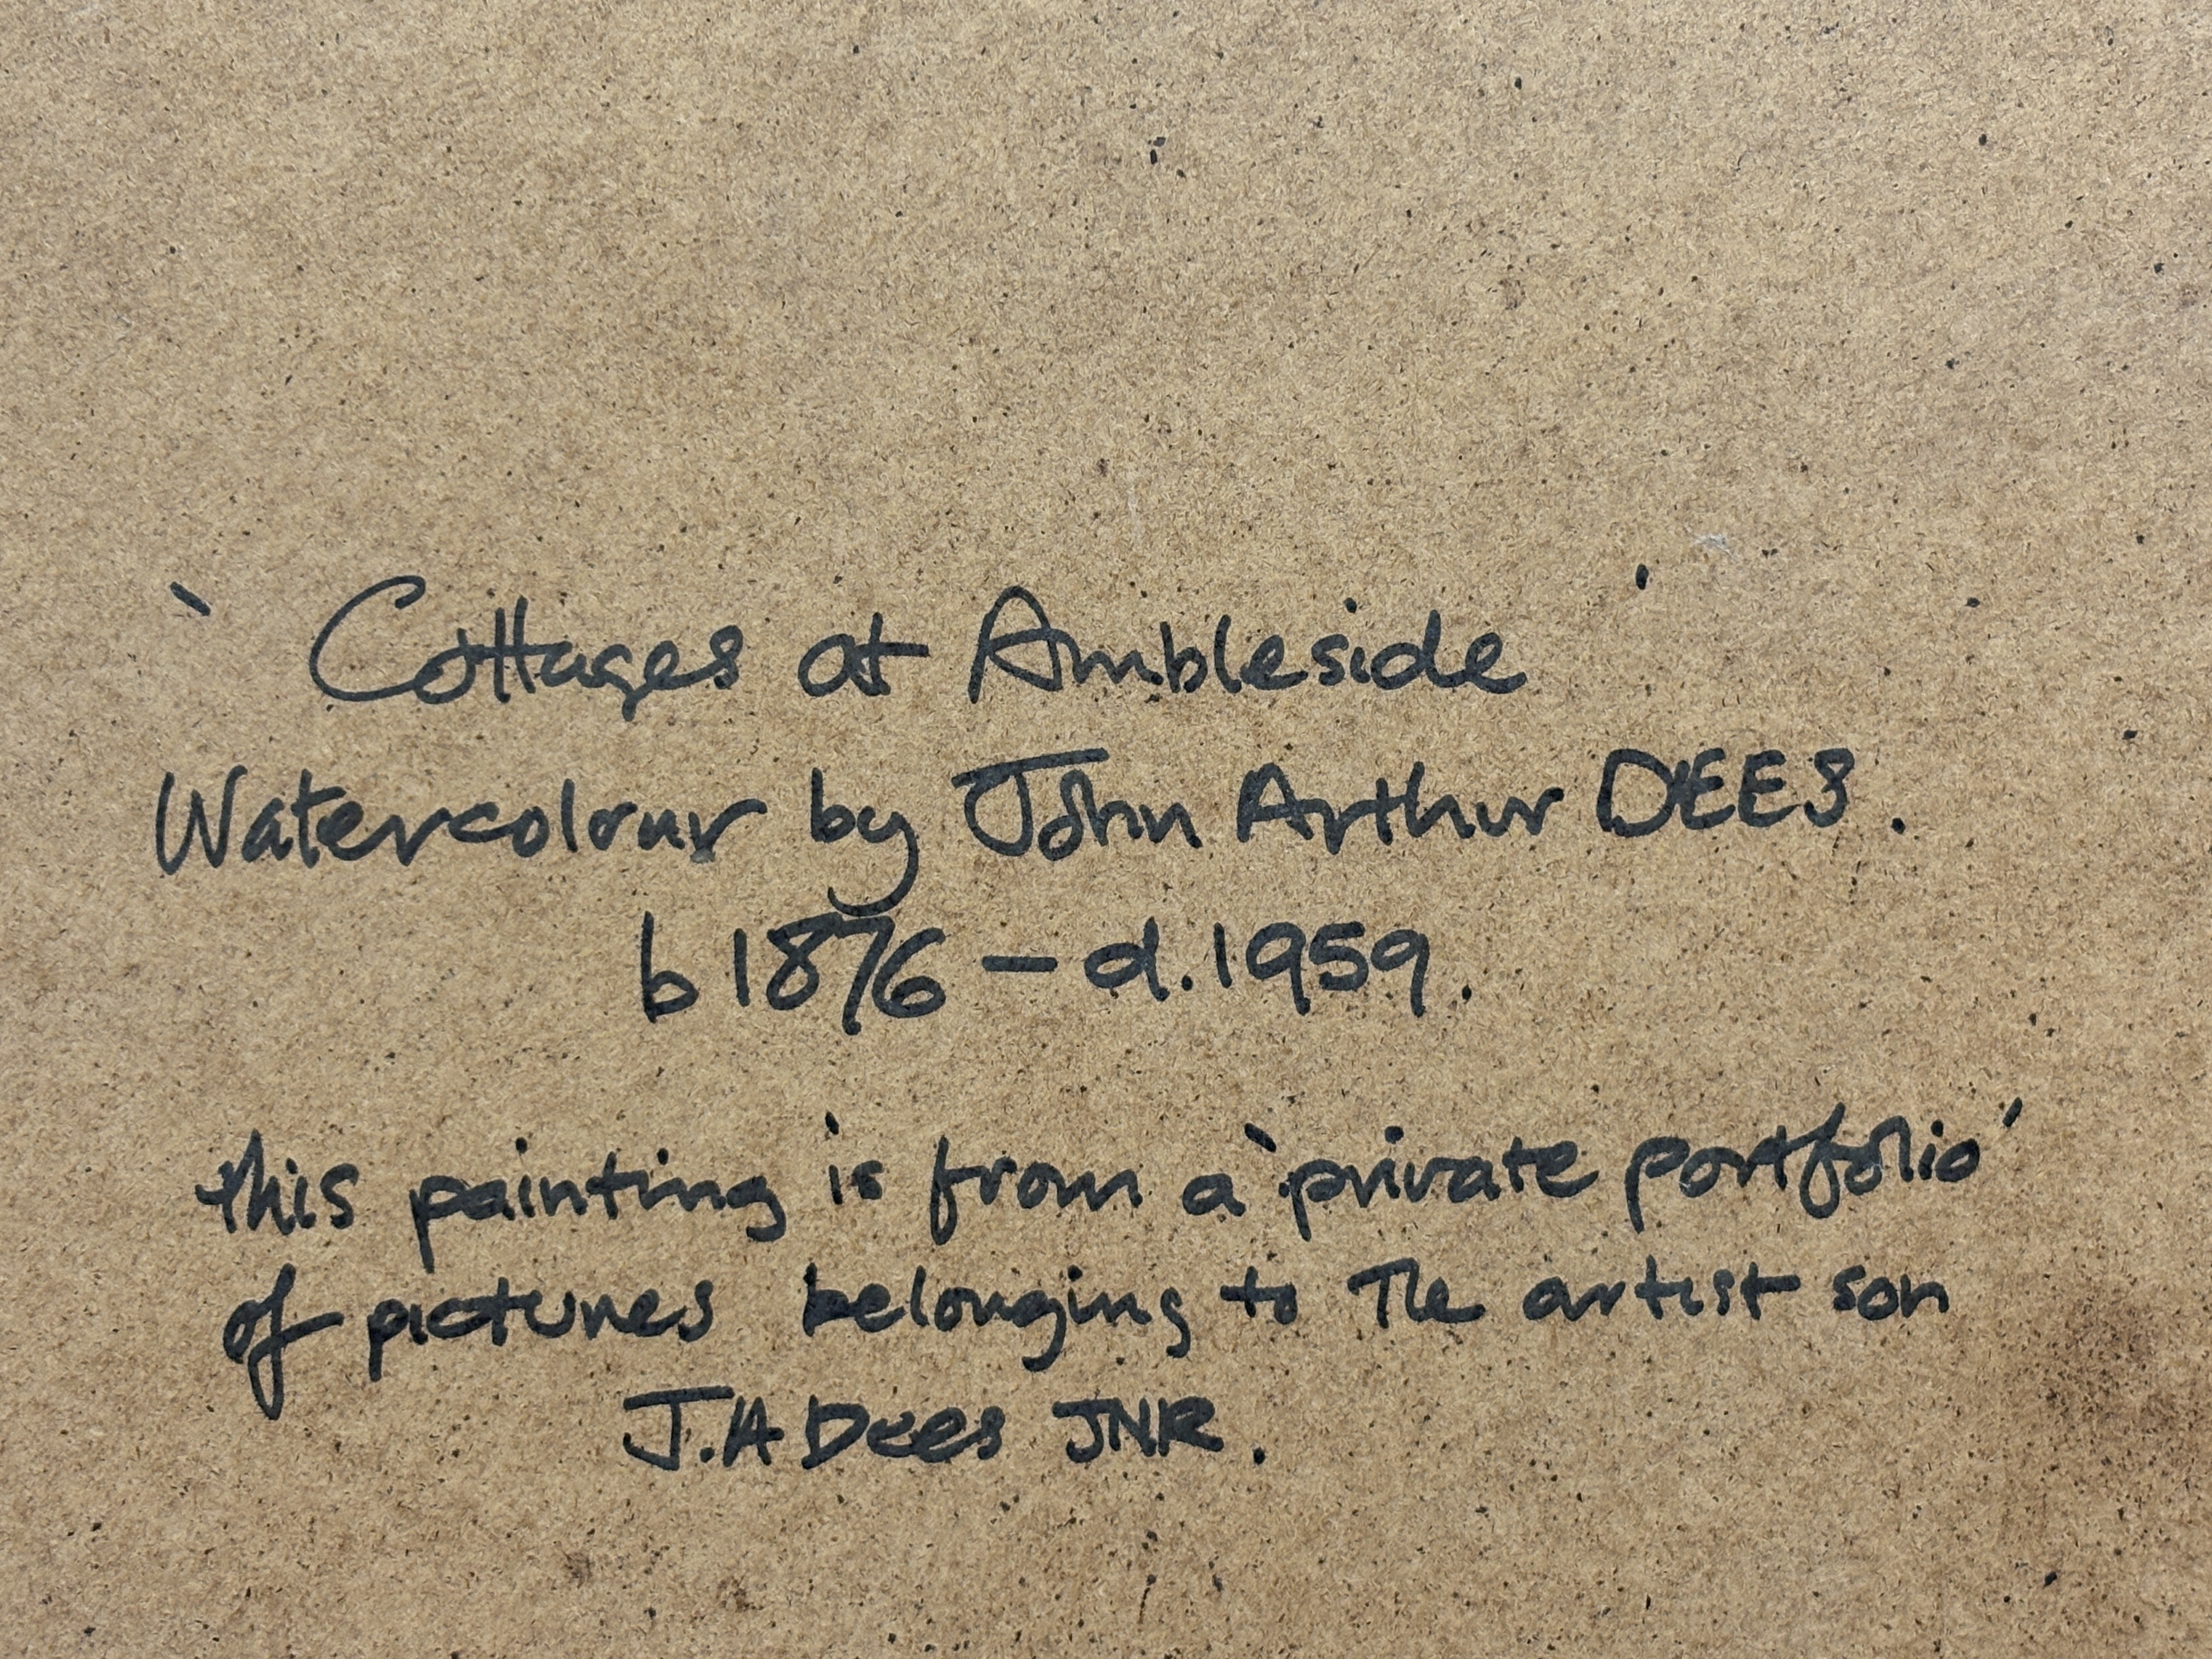 ‘Cottages at Ambleside’
Watercolour by John Arthur DEES.
b 1876 – d. 1959.
this painting is from a ‘private portfolio’
of pictures belonging to The artist son
J.A Dees JNR.